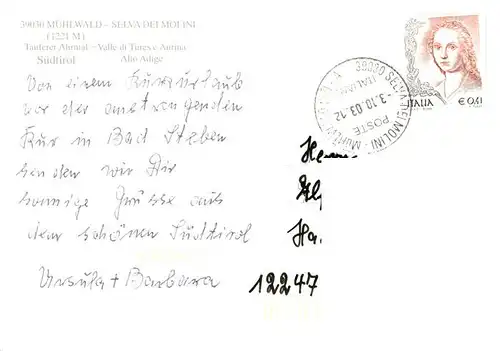 39030 MÜHLWALD – SELVA DEI MOLINI
(1221 M)
Tauferer Ahrntal – Valle di Tures e Aurina
Südtirol Alto Adige
Von einem Kurzurlaub
vor der anstrengenden
Kur in Bad Steben
senden wir Dir
sonnige Grüsse aus
dem schönen Südtirol
Ursula + Barbara
ITALIA € 0,41
39030 SELVA DEI MOLINI - MÜHLWALD
ITALIA
-3.10.03.12
POSTE
He
Ha.
12247